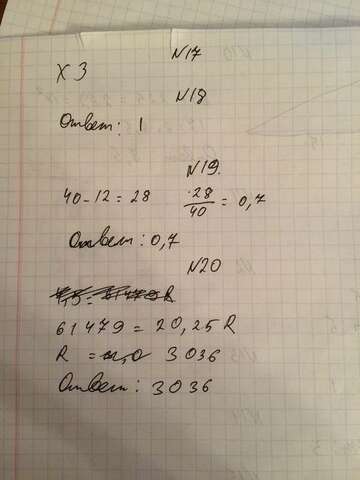 N17
х 3
N18
Ответ: 1
N19.
40 - 12 = 28 28/40 = 0,7
Ответ: 0,7
N20
61479 = 20,25 R
R = 3036
Ответ: 3036